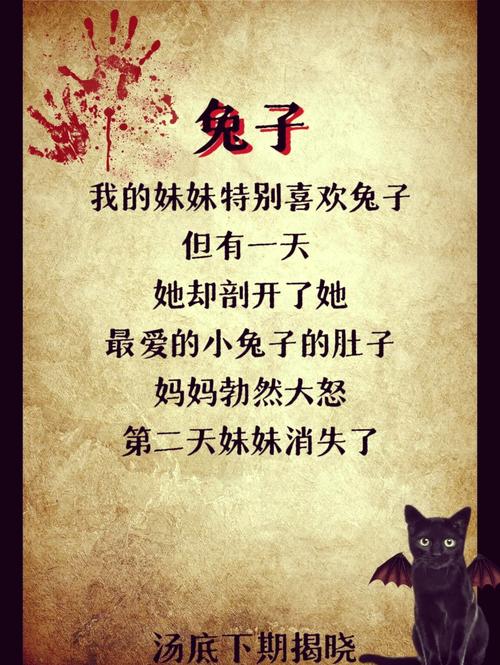 兔子
我的妹妹特别喜欢兔子
但有一天
她却剖开了她
最爱的小兔子的肚子
妈妈勃然大怒
第二天妹妹消失了
汤底下期揭晓